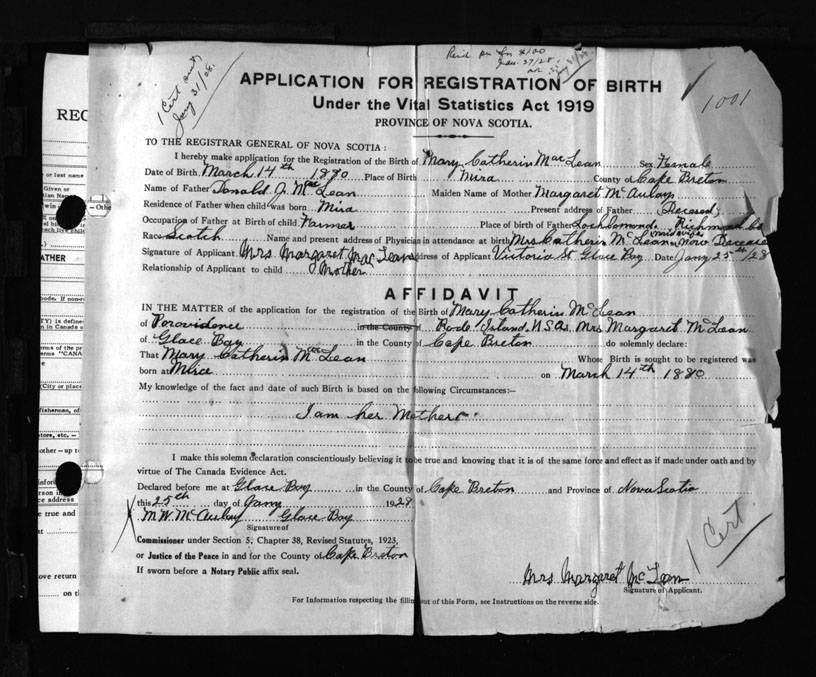 1 Cert
Jany 31/28.
1001
APPLICATION FOR REGISTRATION OF BIRTH
Under the Vital Statistics Act 1919
PROVINCE OF NOVA SCOTIA.
TO THE REGISTRAR GENERAL OF NOVA SCOTIA:
I hereby make application for the Registration of the Birth of Mary Catherin MacLean Sex Female
Date of Birth March 14th 1880 Place of Birth Mira County of Cape Breton
Name of Father Donald J. McLean Maiden Name of Mother Margaret McAulay
Residence of Father when child was born Mira Present address of Father Deceased
Occupation of Father at Birth of child Farmer Place of birth of Father Lochlomond Richmond Co
Race Scotch Name and present address of Physician in attendance at birth Mrs Catherin McLean midwife now Deceased
Signature of Applicant Mrs. Margaret MacLean Address of Applicant Victoria St Glace Bay Date Jany 25th/28
Relationship of Applicant to child Mother
AFFIDAVIT
IN THE MATTER of the application for the registration of the Birth of Mary Catherin McLean
of Porovidence in the County of Rode Island. U.S.A. Mrs Margaret McLean
of Glace Bay in the County of Cape Breton do solemnly declare:
That Mary Catherin McLean Whose Birth is sought to be registered was
born at Mira on March 14th 1880
My knowledge of the fact and date of such Birth is based on the following Circumstances:—
I am her Mother.
I make this solemn declaration conscientiously believing it to be true and knowing that it is of the same force and effect as if made under oath and by
virtue of The Canada Evidence Act.
Declared before me at Glace Bay in the County of Cape Breton and Province of Nova Scotia
this 25th day of Jany 1928
M.W. McAulay Glace Bay
Signature of
Commissioner under Section 5, Chapter 38, Revised Statutes, 1923,
or Justice of the Peace in and for the County of Cape Breton
If sworn before a Notary Public affix seal.
1 Cert.
Mrs Margaret McLean
Signature of Applicant.
For Information respecting the filling out of this Form, see Instructions on the reverse side.